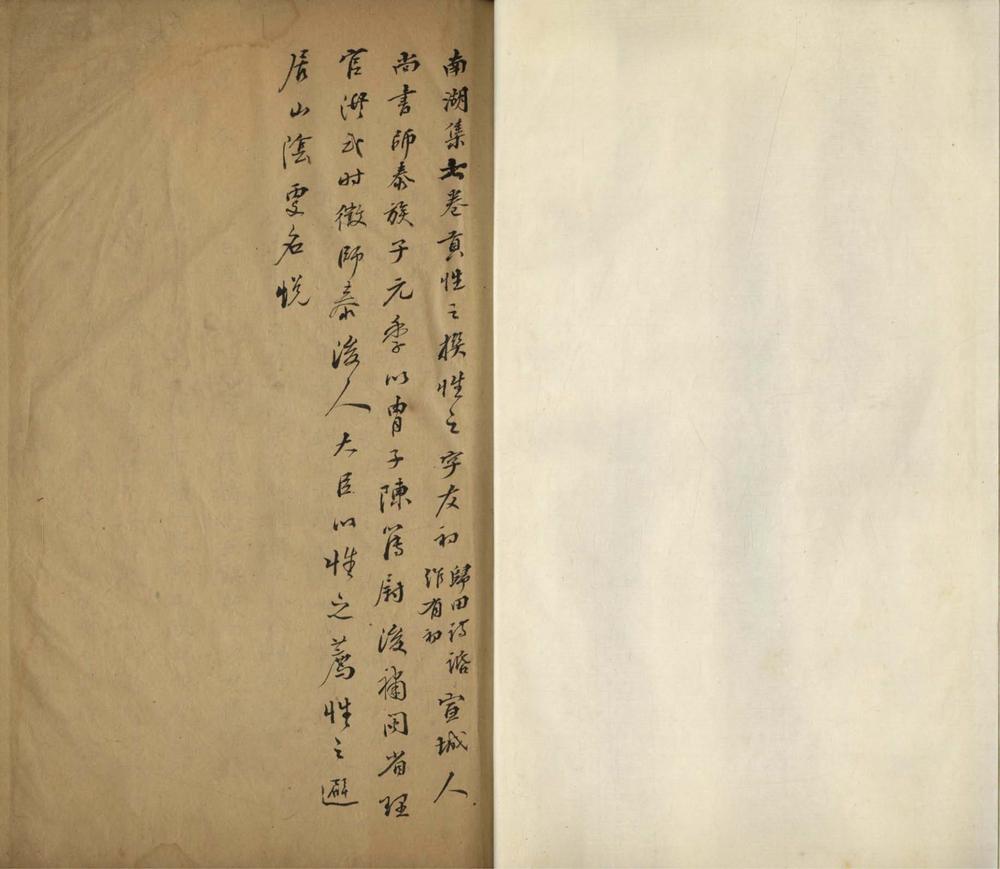 南湖集七卷貢性之撰性之字友初歸田詩話作有初宣城人
尚書師泰族子元季以胄子除簿尉後補閩省理
官洪武时徵師泰後人大臣以性之薦性之避
居山陰更名悦